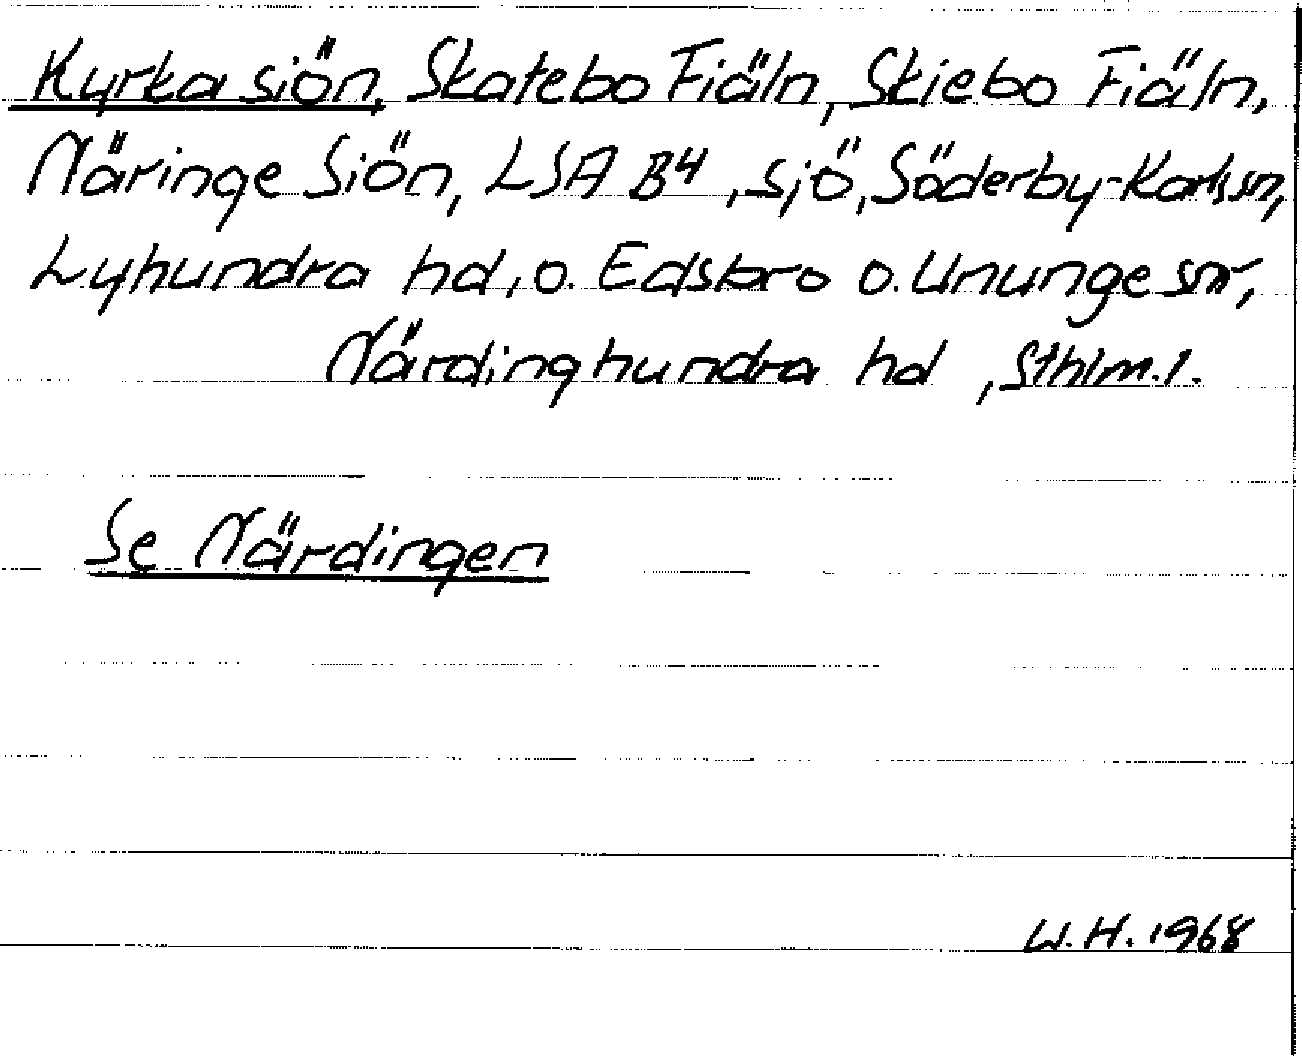 Kyrka siön, Skatebo Fiäln, Skiebo Fiäln,
Näringe Siön, LSA B4, sjö, Söderby-Karls sn,
Lyhundra hd, o. Edsbro o. Ununge snr,
Närdinghundra hd, Sthlm. l.
Se Närdingen
W. H. 1968